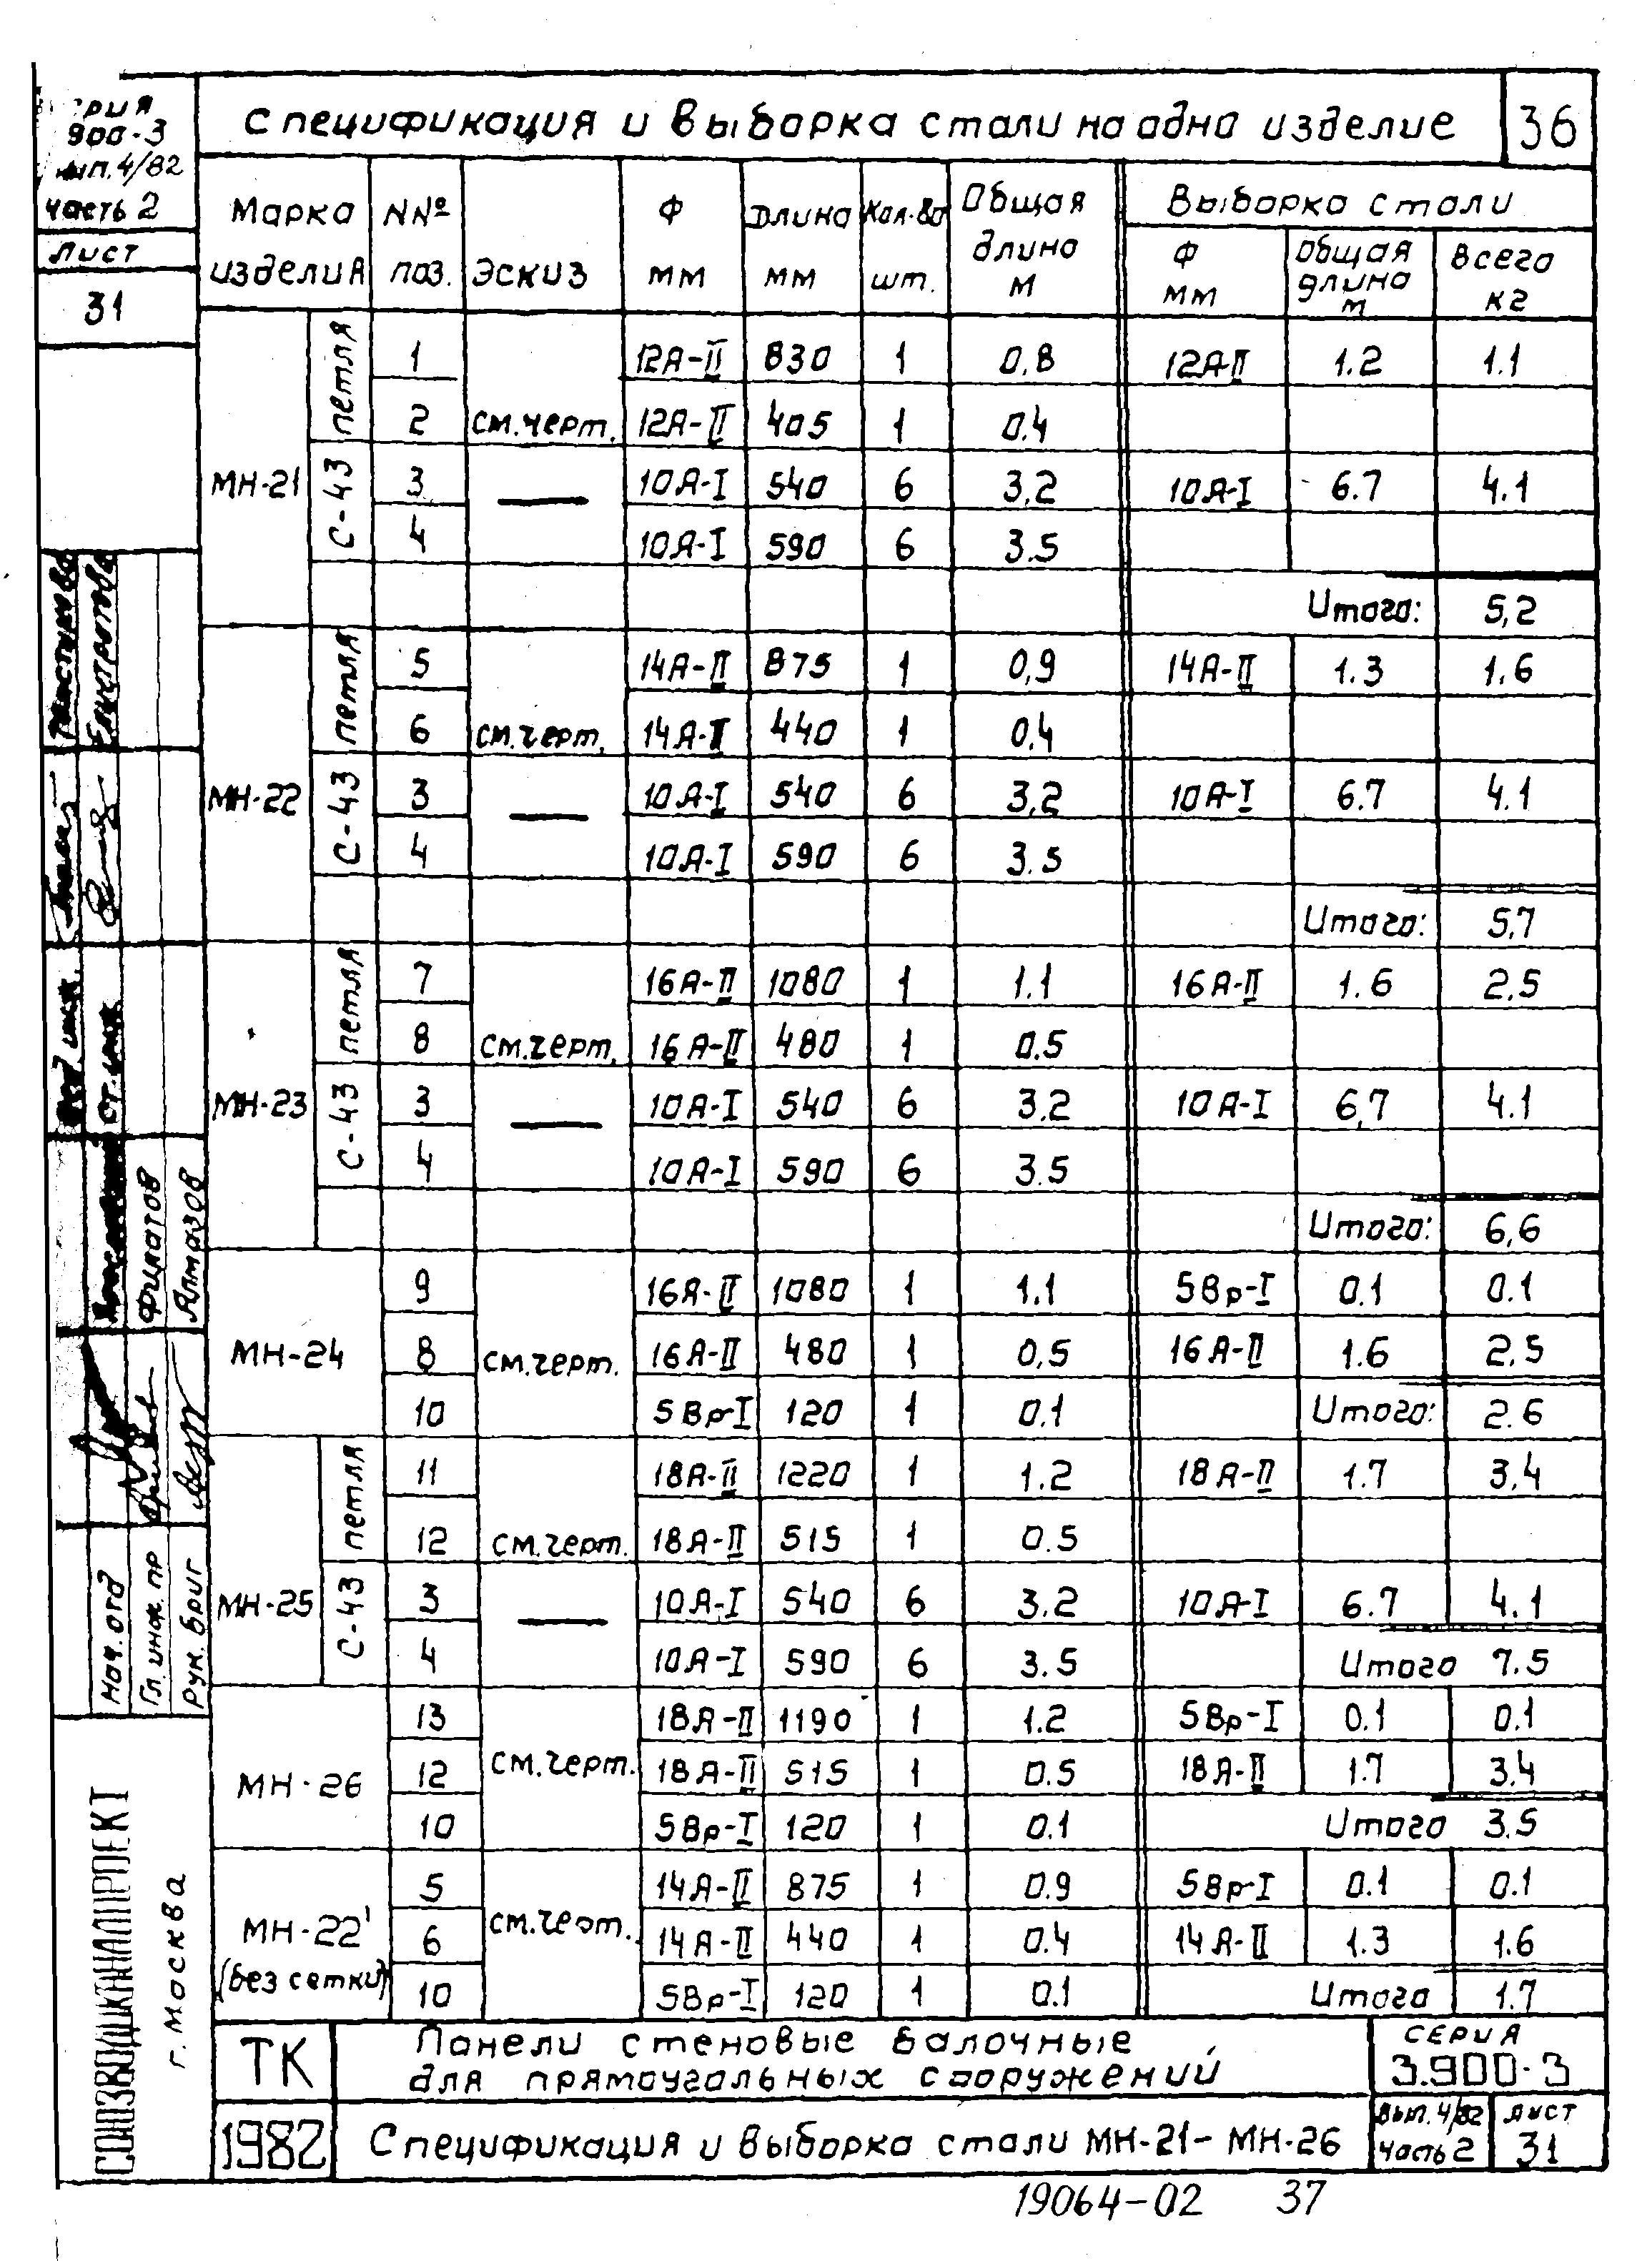 Спецификация и выборка стали на одно изделие 36
часть 2
Лист
31
Марка изделия | NNº поз. | Эскиз | Ф мм | Длина мм | Кол-во шт. | Общая длина м | Выборка стали
Ф мм | Общая длина м | Всего кг
МН-21 | петля | 1 | 12А-II | 830 | 1 | 0,8 | 12А-II | 1.2 | 1.1
2 | см.черт. | 12А-II | 405 | 1 | 0.4
С-43 | 3 | — | 10А-I | 540 | 6 | 3,2 | 10А-I | 6.7 | 4.1
4 | 10А-I | 590 | 6 | 3.5
Итого: 5,2
МН-22 | петля | 5 | 14А-II | 875 | 1 | 0,9 | 14А-II | 1.3 | 1.6
6 | см.черт. | 14А-II | 440 | 1 | 0,4
С-43 | 3 | — | 10А-I | 540 | 6 | 3,2 | 10А-I | 6.7 | 4.1
4 | 10А-I | 590 | 6 | 3.5
Итого: 5,7
МН-23 | петля | 7 | 16А-II | 1080 | 1 | 1.1 | 16А-II | 1.6 | 2.5
8 | см.черт. | 16А-II | 480 | 1 | 0.5
С-43 | 3 | — | 10А-I | 540 | 6 | 3.2 | 10А-I | 6,7 | 4.1
4 | 10А-I | 590 | 6 | 3.5
Итого: 6,6
МН-24 | 9 | 16А-II | 1080 | 1 | 1.1 | 5Вр-I | 0.1 | 0.1
8 | см.черт. | 16А-II | 480 | 1 | 0,5 | 16А-II | 1.6 | 2.5
10 | 5Вр-I | 120 | 1 | 0.1 | Итого: 2.6
МН-25 | петля | 11 | 18А-II | 1220 | 1 | 1.2 | 18А-II | 1.7 | 3,4
12 | см.черт. | 18А-II | 515 | 1 | 0.5
С-43 | 3 | — | 10А-I | 540 | 6 | 3.2 | 10А-I | 6.7 | 4.1
4 | 10А-I | 590 | 6 | 3.5 | Итого 7.5
МН-26 | 13 | 18А-II | 1190 | 1 | 1.2 | 5Вр-I | 0.1 | 0.1
12 | см.черт. | 18А-II | 515 | 1 | 0.5 | 18А-II | 1.7 | 3.4
10 | 5Вр-I | 120 | 1 | 0.1 | Итого 3.5
МН-22' (без сетки) | 5 | 14А-II | 875 | 1 | 0.9 | 5Вр-I | 0.1 | 0.1
6 | см.черт. | 14А-II | 440 | 1 | 0.4 | 14А-II | 1.3 | 1.6
10 | 5Вр-I | 120 | 1 | 0.1 | Итого 1.7
Ст.инж
Филатов
Алмазов
Нач. отд
Гл. инж. пр
Рук. бриг
СОЮЗВОДОКАНАЛПРОЕКТ
г. Москва
ТК
Панели стеновые балочные
для прямоугольных сооружений
СЕРИЯ
3.900-3
1982
Спецификация и выборка стали МН-21- МН-26
Вып. 4/82
часть 2
лист
31
19064-02 37